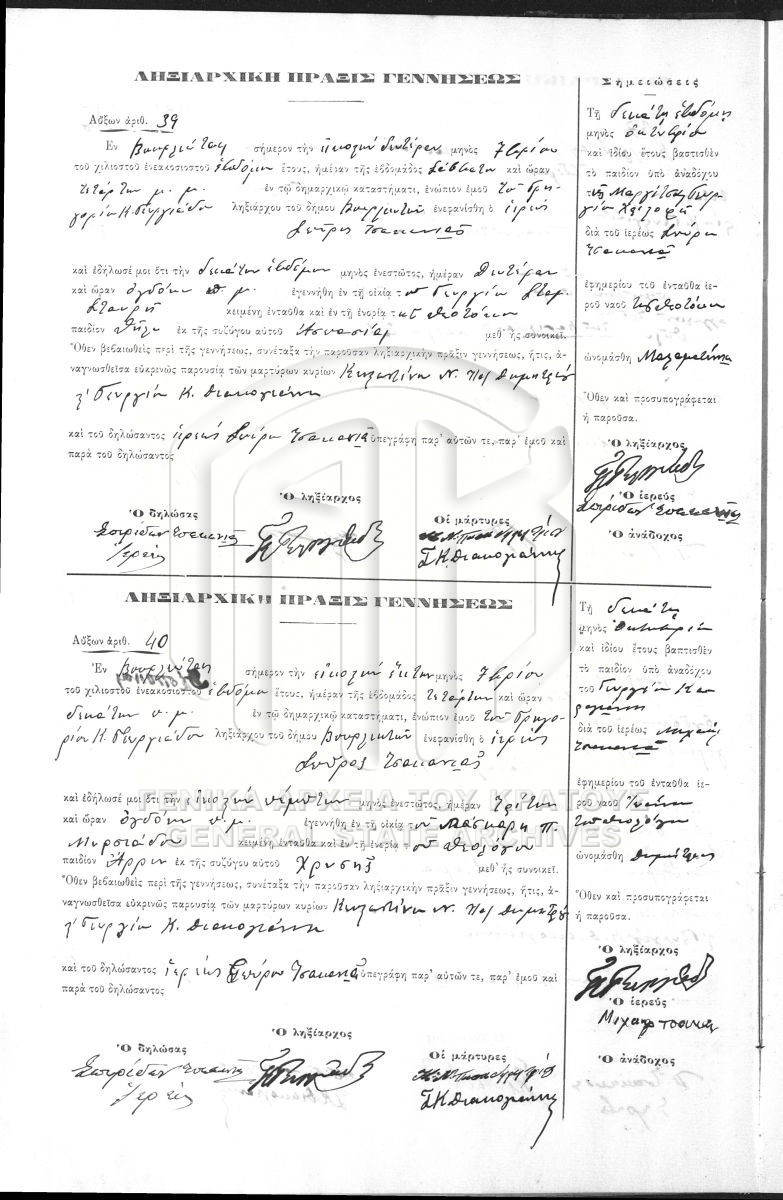 ΛΗΞΙΑΡΧΙΚΗ ΠΡΑΞΙΣ ΓΕΝΝΗΣΕΩΣ
Αὔξων ἀριθ. 39
Ἐν σήμερον τὴν εἰκοστὴν δευτέραν μηνὸς 7βρίου
τοῦ χιλιοστοῦ ἐνεακοσιοστοῦ ἑβδόμου ἔτους, ἡμέραν τῆς ἑβδομάδος Σάββατον καὶ ὥραν
τετάρτην μ. μ. ἐν τῷ δημαρχικῷ καταστήματι, ἐνώπιον ἐμοῦ τοῦ Γρη-
γορίου Κ. Γεωργιάδου ληξιάρχου τοῦ δήμου Βουρλιωτῶν ἐνεφανίσθη ὁ ἱερεὺς
Σπῦρος Τσακανιᾶς
καὶ ἐδήλωσέ μοι ὅτι τὴν δεκάτην ἑβδόμην μηνὸς ἐνεστῶτος, ἡμέραν Δευτέραν
καὶ ὥραν ὀγδόην μ. ἐγεννήθη ἐν τῇ οἰκίᾳ τοῦ Γεωργίου Σταμ.
κειμένη ἐνταῦθα καὶ ἐν τῇ ἐνορίᾳ τῆς Θεοτόκου
παιδίον θῆλυ ἐκ τῆς συζύγου αὐτοῦ Ἀσπασίας μεθ' ἧς συνοικεῖ.
Ὅθεν βεβαιωθεὶς περὶ τῆς γεννήσεως, συνέταξα τὴν παροῦσαν ληξιαρχικὴν πρᾶξιν γεννήσεως, ἥτις, ἀ-
ναγνωσθεῖσα εὐκρινῶς παρουσίᾳ τῶν μαρτύρων κυρίων Κωνσταντίνου Ν. Δημητρίου
Γεωργίου Κ. Διακογιάννη
καὶ τοῦ δηλώσαντος ἱερέως Σπύρου Τσακανιᾶ ὑπεγράφη παρ' αὐτῶν τε, παρ' ἐμοῦ καὶ
παρὰ τοῦ δηλώσαντος
Ὁ δηλώσας
Ὁ ληξίαρχος
Οἱ μάρτυρες
Σπυρίδων Τσακανιᾶς
Ἱερεὺς
Γ. Κ. Διακογιάννης
Σημειώσεις
Τῇ δεκάτῃ ἑβδόμῃ
μηνὸς Ὀκτωβρίου
καὶ ἰδίου ἔτους βαπτισθὲν
τὸ παιδίον ὑπὸ ἀναδόχου
διὰ τοῦ ἱερέως Σπύρου
Τσακανιᾶ
ἐφημερίου τοῦ ἐνταῦθα ἱε-
ροῦ ναοῦ τῆς Θεοτόκου
ὠνομάσθη Μαλαματένια
Ὅθεν καὶ προσυπογράφεται
ἡ παροῦσα.
Ὁ ληξίαρχος
Ὁ ἱερεὺς
Σπυρίδων Τσακανιᾶς
Ὁ ἀνάδοχος
ΛΗΞΙΑΡΧΙΚΗ ΠΡΑΞΙΣ ΓΕΝΝΗΣΕΩΣ
Αὔξων ἀριθ. 40
Ἐν σήμερον τὴν εἰκοστὴν ἕκτην μηνὸς 7βρίου
τοῦ χιλιοστοῦ ἐνεακοσιοστοῦ ἑβδόμου ἔτους, ἡμέραν τῆς ἑβδομάδος Τετάρτην καὶ ὥραν
δεκάτην π. μ. ἐν τῷ δημαρχικῷ καταστήματι, ἐνώπιον ἐμοῦ τοῦ Γρηγο-
ρίου Κ. Γεωργιάδου ληξιάρχου τοῦ δήμου Βουρλιωτῶν ἐνεφανίσθη ὁ ἱερεὺς
Σπῦρος Τσακανιᾶς
καὶ ἐδήλωσέ μοι ὅτι τὴν εἰκοστὴν πέμπτην μηνὸς ἐνεστῶτος, ἡμέραν Τρίτην
καὶ ὥραν ὀγδόην π. μ. ἐγεννήθη ἐν τῇ οἰκίᾳ τοῦ Π.
κειμένη ἐνταῦθα καὶ ἐν τῇ ἐνορίᾳ τοῦ Θεολόγου
παιδίον ἄρρεν ἐκ τῆς συζύγου αὐτοῦ Χρυσῆς μεθ' ἧς συνοικεῖ.
Ὅθεν βεβαιωθεὶς περὶ τῆς γεννήσεως, συνέταξα τὴν παροῦσαν ληξιαρχικὴν πρᾶξιν γεννήσεως, ἥτις, ἀ-
ναγνωσθεῖσα εὐκρινῶς παρουσίᾳ τῶν μαρτύρων κυρίων Κωνσταντίνου Ν. Δημητρίου
Γεωργίου Κ. Διακογιάννη
καὶ τοῦ δηλώσαντος ἱερέως Σπύρου Τσακανιᾶ ὑπεγράφη παρ' αὐτῶν τε, παρ' ἐμοῦ καὶ
παρὰ τοῦ δηλώσαντος
Ὁ δηλώσας
Ὁ ληξίαρχος
Οἱ μάρτυρες
Σπυρίδων Τσακανιᾶς
Ἱερεὺς
Γ. Κ. Διακογιάννης
Τῇ δεκάτῃ
μηνὸς Ὀκτωβρίου
καὶ ἰδίου ἔτους βαπτισθὲν
τὸ παιδίον ὑπὸ ἀναδόχου
τοῦ Γεωργίου
διὰ τοῦ ἱερέως Μιχαὴλ
Τσακανιᾶ
ἐφημερίου τοῦ ἐνταῦθα ἱε-
ροῦ ναοῦ Ἰωάννου
τοῦ Θεολόγου
ὠνομάσθη Δημήτριος
Ὅθεν καὶ προσυπογράφεται
ἡ παροῦσα.
Ὁ ληξίαρχος
Ὁ ἱερεὺς
Ὁ ἀνάδοχος
ΓΕΝΙΚΑ ΑΡΧΕΙΑ ΤΟΥ ΚΡΑΤΟΥΣ
GENERAL STATE ARCHIVES